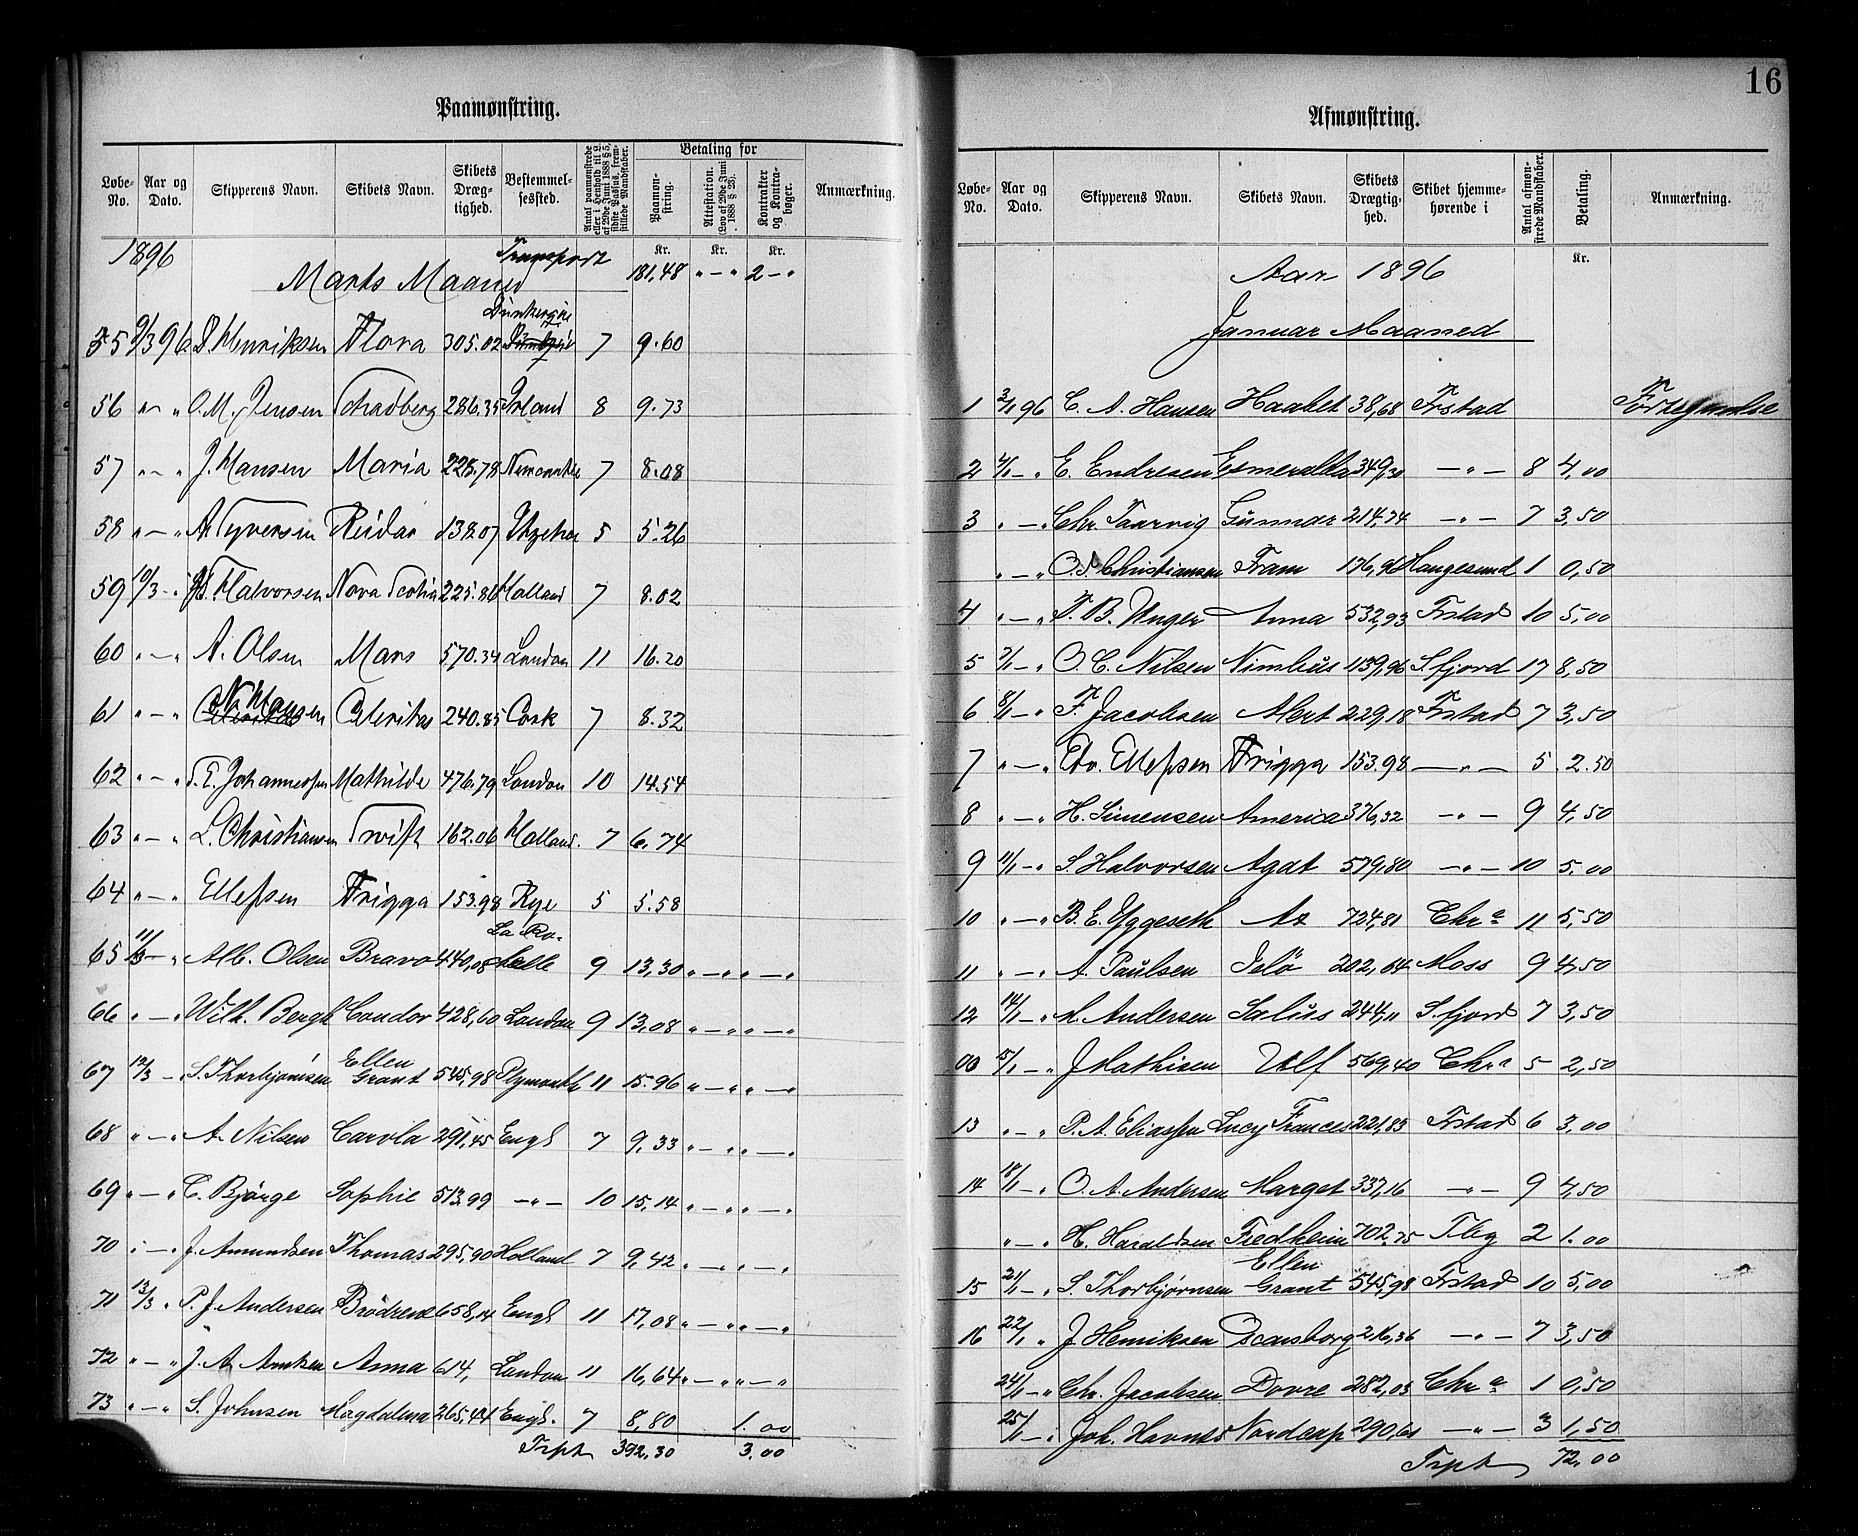 16
Paamønstring.
Løbe-No. Aar og Dato. Skipperens Navn. Skibets Navn. Skibets Dræg-tighed. Bestemmel-sessted. Antal paamønstrede eller i Henhold til L. af 29de Juni 1888 § 5, sidste Passus, frem-stillede Mandskaber. Betaling for Paamøn-string. Attestation. (Lov af 29de Juni 1888 § 25). Kontrakter og Kontra-bøger. Anmærkning.
1896 Transport Kr. Kr. Kr.
Marts Maaned 181,48 " — " 2 — "
Dünkerque
55 9/3 96 Henriksen Flora 305.02 7 9.60
56 " — " O. M. Jensen Tordberg 286.35 Irland 8 9.73
57 " — " J. Hansen Maria 228,78 7 8.08
58 " — " Reidar 138.07 5 5.26
59 10/3 — " Halvorsen Nova Scotia 225.86 Holland 7 8.02
60 " — " A. Olsen Mars 570.34 London 11 16.20
61 " — " N. Hansen Celeritas 240.85 Cork 7 8.32
62 " — " T. E. Johannessen Mathilde 476.79 London 10 14.54
63 " — " L. Christiansen Swift 162.06 Holland. 7 6.74
64 " — " Ellefsen Frigga 153.98 Rye 5 5.58
La Ro-
65 11/3 — " Alb. Olsen Bravo 440,08 chelle 9 13,30 " — " " — "
66 " — " Wilh. Bergh Condor 428,60 London 9 13,08 " — " " — "
67 12/3 — S. Thorbjørnsen Ellen Grant 545,98 Plymouth 11 15.96 " — " " — "
68 " — " A. Nilsen Carola 291,45 Engl 7 9,33 " — " " — "
69 " — " C. Bjørge Sophie 513,99 — " — 10 15,14 " — " " — "
70 " — " J. Amundsen Thomas 295,90 Holland 7 9,42 " — " " — "
71 13/3 " P. J. Andersen Brødrene 658,14 Engl 11 17,08 " — " " — "
72 " — " J. A. Arntzen Anna 614, London 11 16,64 " — " " — "
73 " — " S. Johnsen Magdalena 265,44 Engl. 7 8,80 1.00
Trpt 392.30 3.00
Afmønstring.
Løbe-No. Aar og Dato. Skipperens Navn. Skibets Navn. Skibets Drægtig-hed. Skibet hjemme-hørende i Antal afmøn-strede Mandskaber. Betaling. Anmærkning.
Kr.
Aar 1896
Januar Maaned
1 3/1 96 C. A. Hansen Haabet 38,68 Frstad
2 4/1 — " E. Endresen Esmeralda 349,30 — " — 8 4,00
3 " — " Chr. Taarvig Gunnar 214,74 — " — 7 3,50
" — " O. S. Christiansen Fram 176,96 Haugesund 1 0,50
4 " — " F. B. Unger Anna 532,93 Frstad 10 5,00
5 7/1 — " O. C. Nilsen Nimbus 1139,96 Sfjord 17 8,50
6 8/1 — " F. Jacobsen Alert 229,18 Frstad 7 3,50
7 " — " Edv. Ellefsen Frigga 153.98 — " — 5 2.50
8 " — " H. Simensen America 376,32 — " — 9 4,50
9 11/1 — " S. Halvorsen Agat 579,80 — " — 10 5.00
10 " — " B. E. Yggeseth Ax 724,81 Chr.a 11 5,50
11 " — " A. Paulsen Jelö 202,04 Moss 9 4,50
12 14/1 — " A. Andersen Salus 244,11 Sfjord 7 3,50
00 15/1 — " J Mathisen Ulf 569,40 Chr.a 5 2,50
13 " — " P. A. Eliassen Lucy Frances 221,83 Frstad 6 3,00
14 18/1 — " O. A. Andersen Marget 337,16 — " — 9 4,50
" — " H. Haraldsen Fredheim 702,75 Tbg 2 1.00
15 21/1 — " S. Thorbjørnsen Ellen Grant 545,98 Frstad 10 5,00
16 22/1 " J. Henriksen Oscarsborg 216,36 — " — 7 3,50
24/1 — " Chr. Jacobsen Dovre 282,03 Chr.a 1 0,50
25/1 — " Joh. Nordcap 290,61 — " — 3 1,50
Trpt 72,00